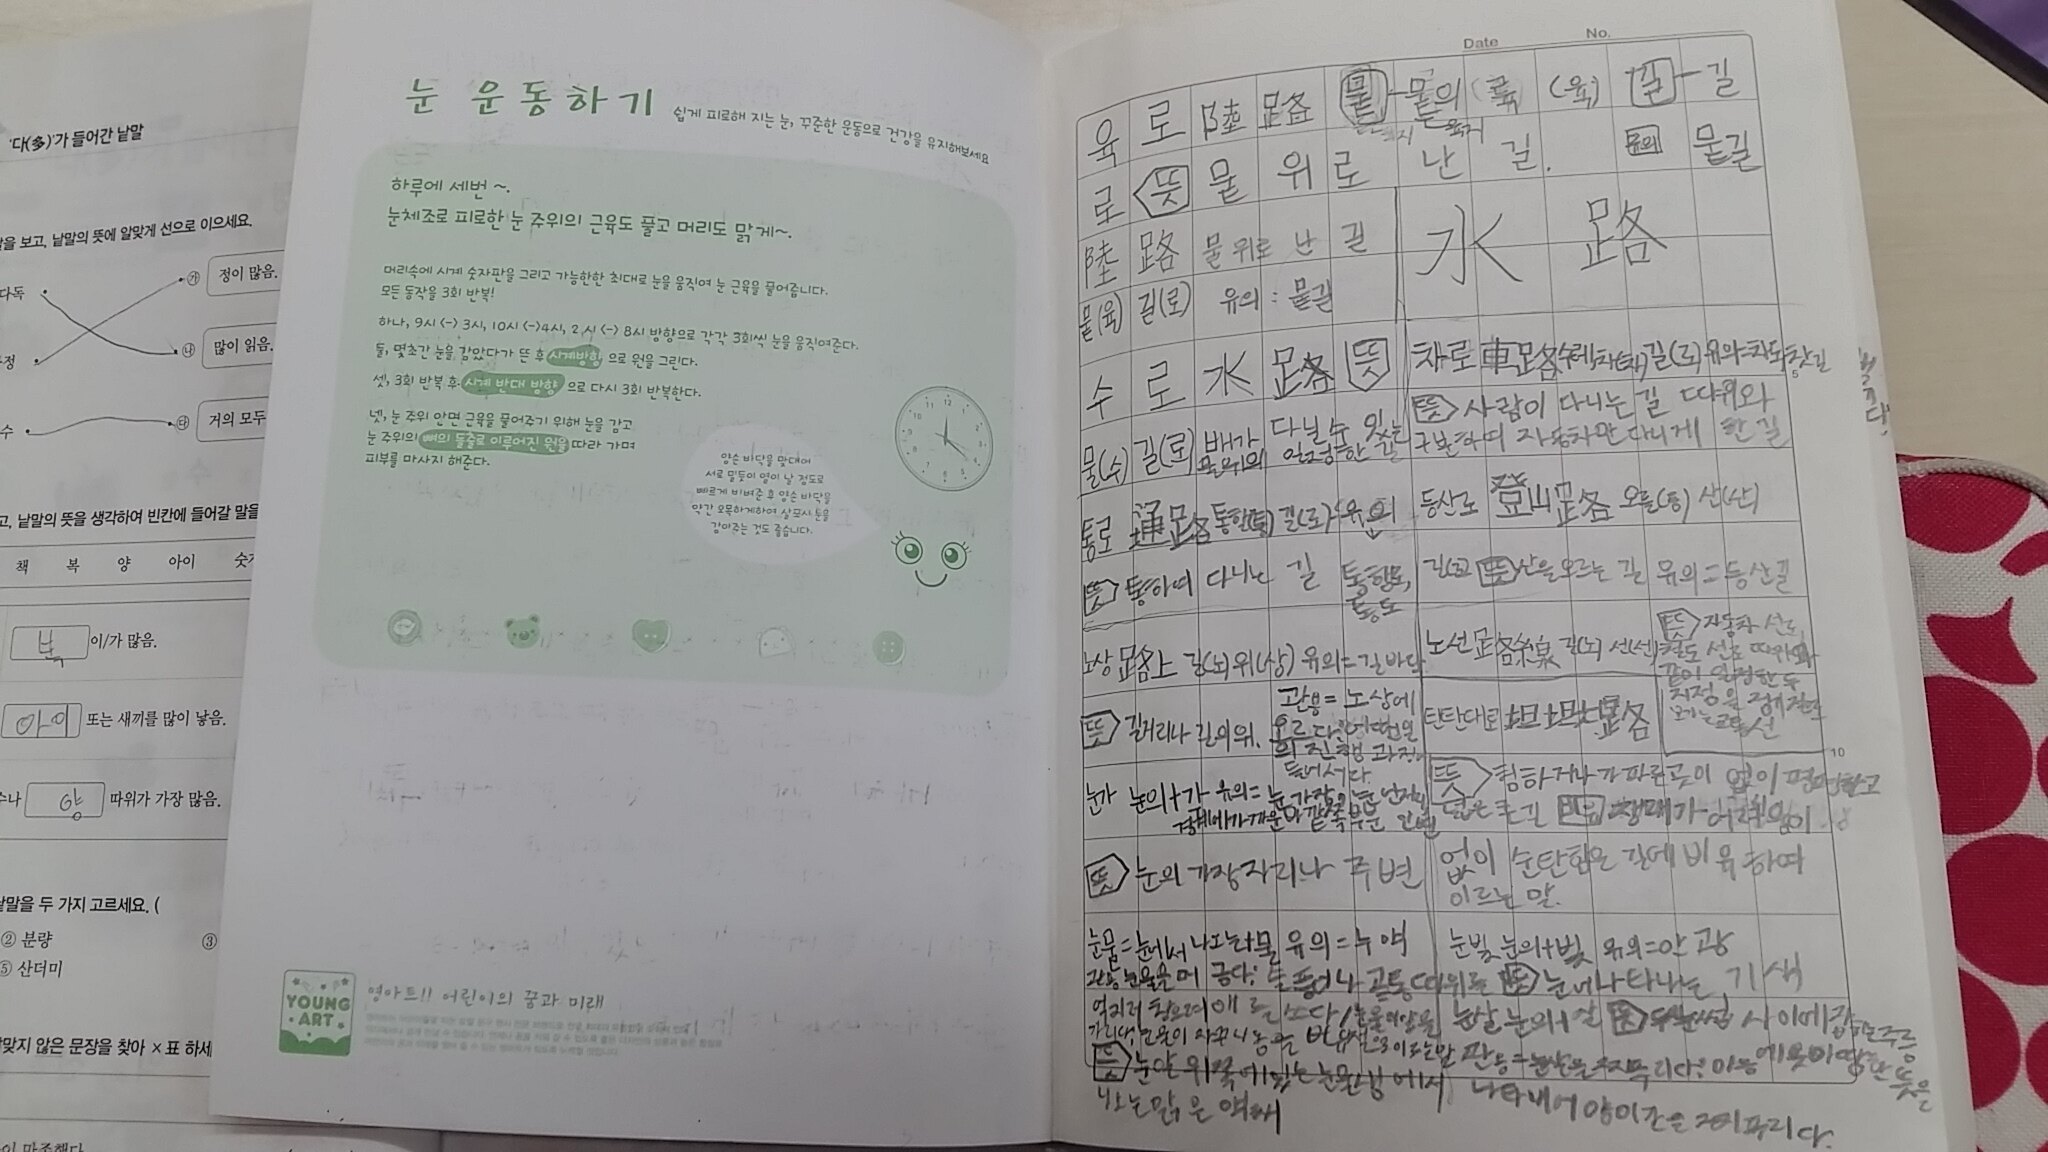 '다(多)'가 들어간 낱말
을 보고, 낱말의 뜻에 알맞게 선으로 이으세요.
다독
㉮ 정이 많음.
㉯ 많이 읽음.
정
수
㉰ 거의 모두
고, 낱말의 뜻을 생각하여 빈칸에 들어갈 말을
책 복 양 아이 숫
복 이/가 많음.
아이 또는 새끼를 많이 낳음.
수나 양 따위가 가장 많음.
낱말을 두 가지 고르세요. (
② 분량 ③
⑤ 산더미
맞지 않은 문장을 찾아 ×표 하세
눈 운동하기
쉽게 피로해 지는 눈, 꾸준한 운동으로 건강을 유지해보세요
하루에 세번 ~.
눈체조로 피로한 눈 주위의 근육도 풀고 머리도 맑게~.
머리속에 시계 숫자판을 그리고 가능한한 최대로 눈을 움직여 눈 근육을 풀어줍니다.
모든 동작을 3회 반복!
하나, 9시 <-> 3시, 10시 <->4시, 2시 <-> 8시 방향으로 각각 3회씩 눈을 움직여준다.
둘, 몇초간 눈을 감았다가 뜬 후 시계방향 으로 원을 그린다.
셋, 3회 반복 후 시계 반대 방향 으로 다시 3회 반복한다.
넷, 눈 주위 안면 근육을 풀어주기 위해 눈을 감고
눈 주위의 뼈의 돌출로 이루어진 원을 따라 가며
피부를 마사지 해준다.
양손 바닥을 맞대어
서로 밀듯이 열이 날 정도로
빠르게 비벼준 후 양손 바닥을
약간 오목하게하여 살포시 눈을
감아주는 것도 좋습니다.
YOUNG
ART
영아트!! 어린이의 꿈과 미래
Date No.
육로 陸路 뭍 - 뭍의 (육) 길 - 길
로 뜻 뭍 위로 난 길. 유의 뭍길
陸路 물 위로 난 길
뭍(육) 길(로) 유의 : 뭍길
水路
수로 水路 뜻
물(수) 길(로) 배가 다닐수 있는
물위의 일정한 길
차로 車路 수레차(차) 길(로) 유의=차도, 찻길
뜻 사람이 다니는 길 따위와
구분하여 자동차만 다니게 한 길
통로 通路 통할(통) 길(로) 유의
뜻 통하여 다니는 길 통행로,
통도
등산로 登山路 오를(등) 산(산)
길(로) 뜻 산을 오르는 길 유의=등산길
노상 路上 길(노) 위(상) 유의=길바닥
뜻 길거리나 길의 위. 관용=노상에
오르다
의 진행 과정에
들어서다.
노선 路線 길(노) 선(선)
뜻 자동차 선로,
철도 선로 따위와
같이 일정한 두
지점을 정기적으로
오가는 교통선
탄탄대로 坦坦大路
뜻 험하거나 가파른 곳이 없이 평평하고
넓은 큰 길 장래가 어려움이
없이 순탄함을 길에 비유하여
이르는 말.
눈가 눈의+가 유의=눈
뜻 눈의 가장자리나 주변
눈물=눈에서 나오는+물 유의=누액
관용 눈물을 머금다: 슬픔이나 고통 따위를
억지로 참으며 애를 쓰다
뜻 눈알 위쪽에 있는 눈물샘에서
나오는 맑은 액체
눈빛 눈의+빛 유의=안광
뜻 눈에 나타나는 기색
눈살 눈의+살 뜻 두 눈썹 사이에 잡히는 주름
관용=눈살을 찌푸리다: 마음에 못마땅한 뜻을
나타내어 양미간을 찌푸리다.